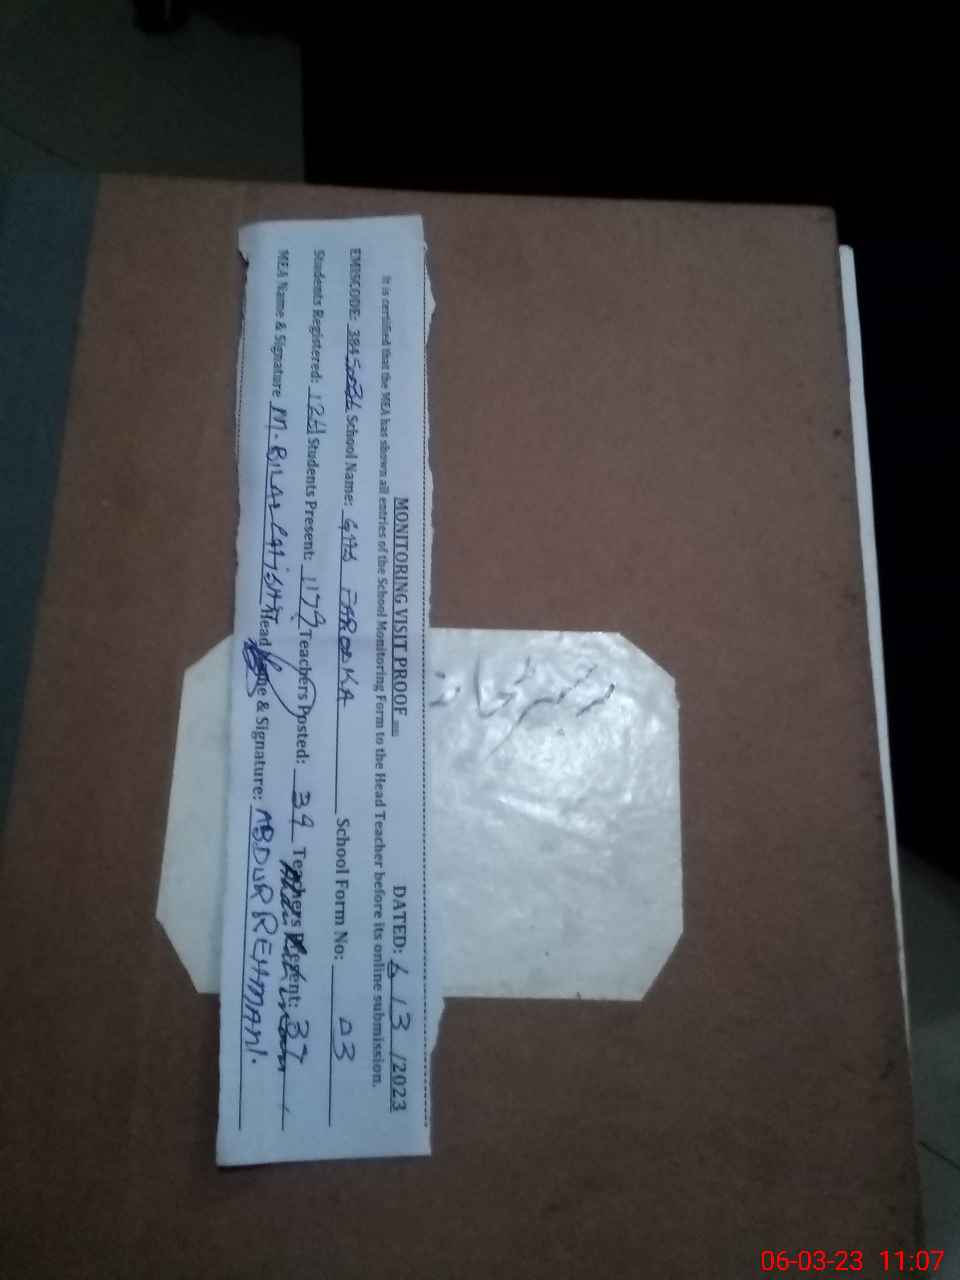 MONITORING VISIT PROOF DATED: 6 / 3 /2023
It is certified that the MEA has shown all entries of the School Monitoring Form to the Head Teacher before its online submission.
EMISCODE: School Name: GHS FAROOKA School Form No: 03
Students Registered: Students Present: 1179 Teachers Posted: Teachers Present: 37
MEA Name & Signature M. BILAL Head Name & Signature: ABDUR REHMAN
06-03-23 11:07